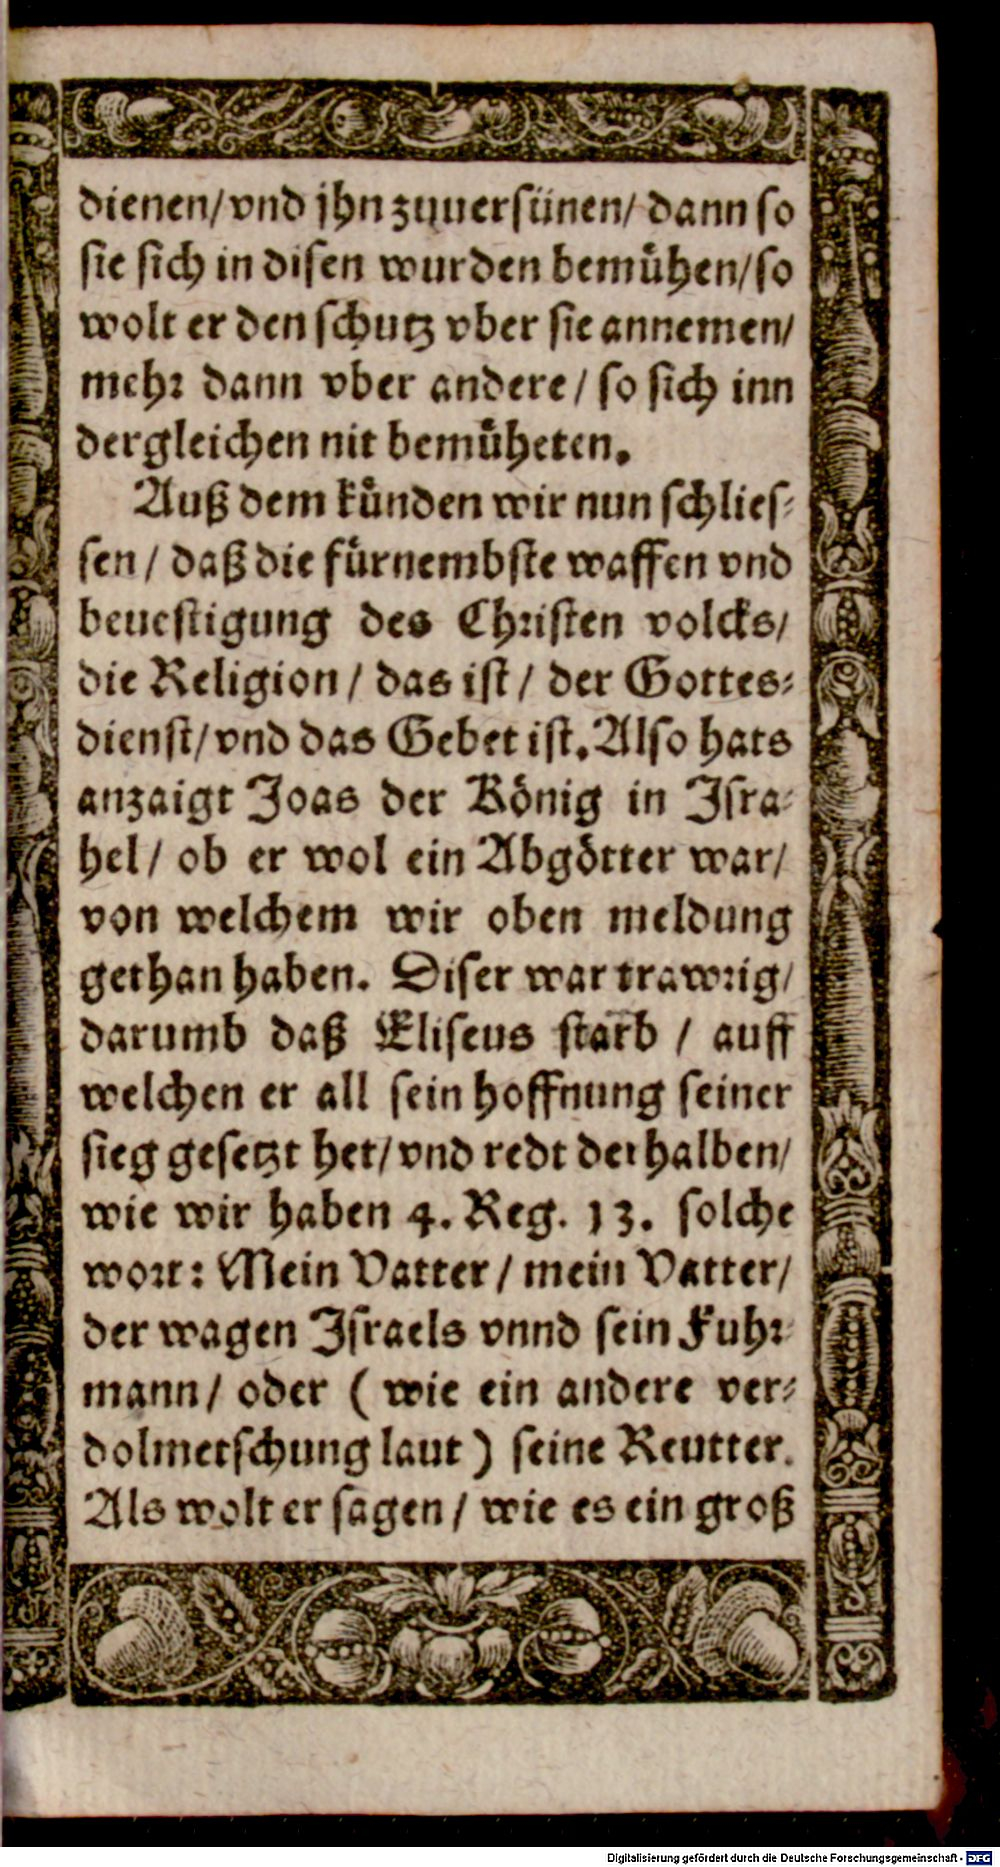 dienen/vnd jhn zuuersünen/dann so
sie sich in disen wurden bemühen/so
wolt er den schutz vber sie annemen/
mehr dann vber andere/so sich inn
dergleichen nit bemüheten.
Auß dem künden wir nun schlies-
sen/daß die fürnembste waffen vnd
beuestigung des Christen volcks/
die Religion/das ist/der Gottes-
dienst/vnd das Gebet ist. Also hats
anzaigt Joas der König in Jsra-
hel/ob er wol ein Abgötter war/
von welchem wir oben meldung
gethan haben. Diser war trawrig/
darumb daß Eliseus starb/auff
welchen er all sein hoffnung seiner
sieg gesetzt het/vnd redt derhalben/
wie wir haben 4. Reg. 13. solche
wort: Mein Vatter/mein Vatter/
der wagen Jsraels vnnd sein Fuhr-
mann/oder (wie ein andere ver-
dolmetschung laut) seine Reutter.
Als wolt er sagen/wie es ein groß
Digitalisierung gefördert durch die Deutsche Forschungsgemeinschaft - DFG